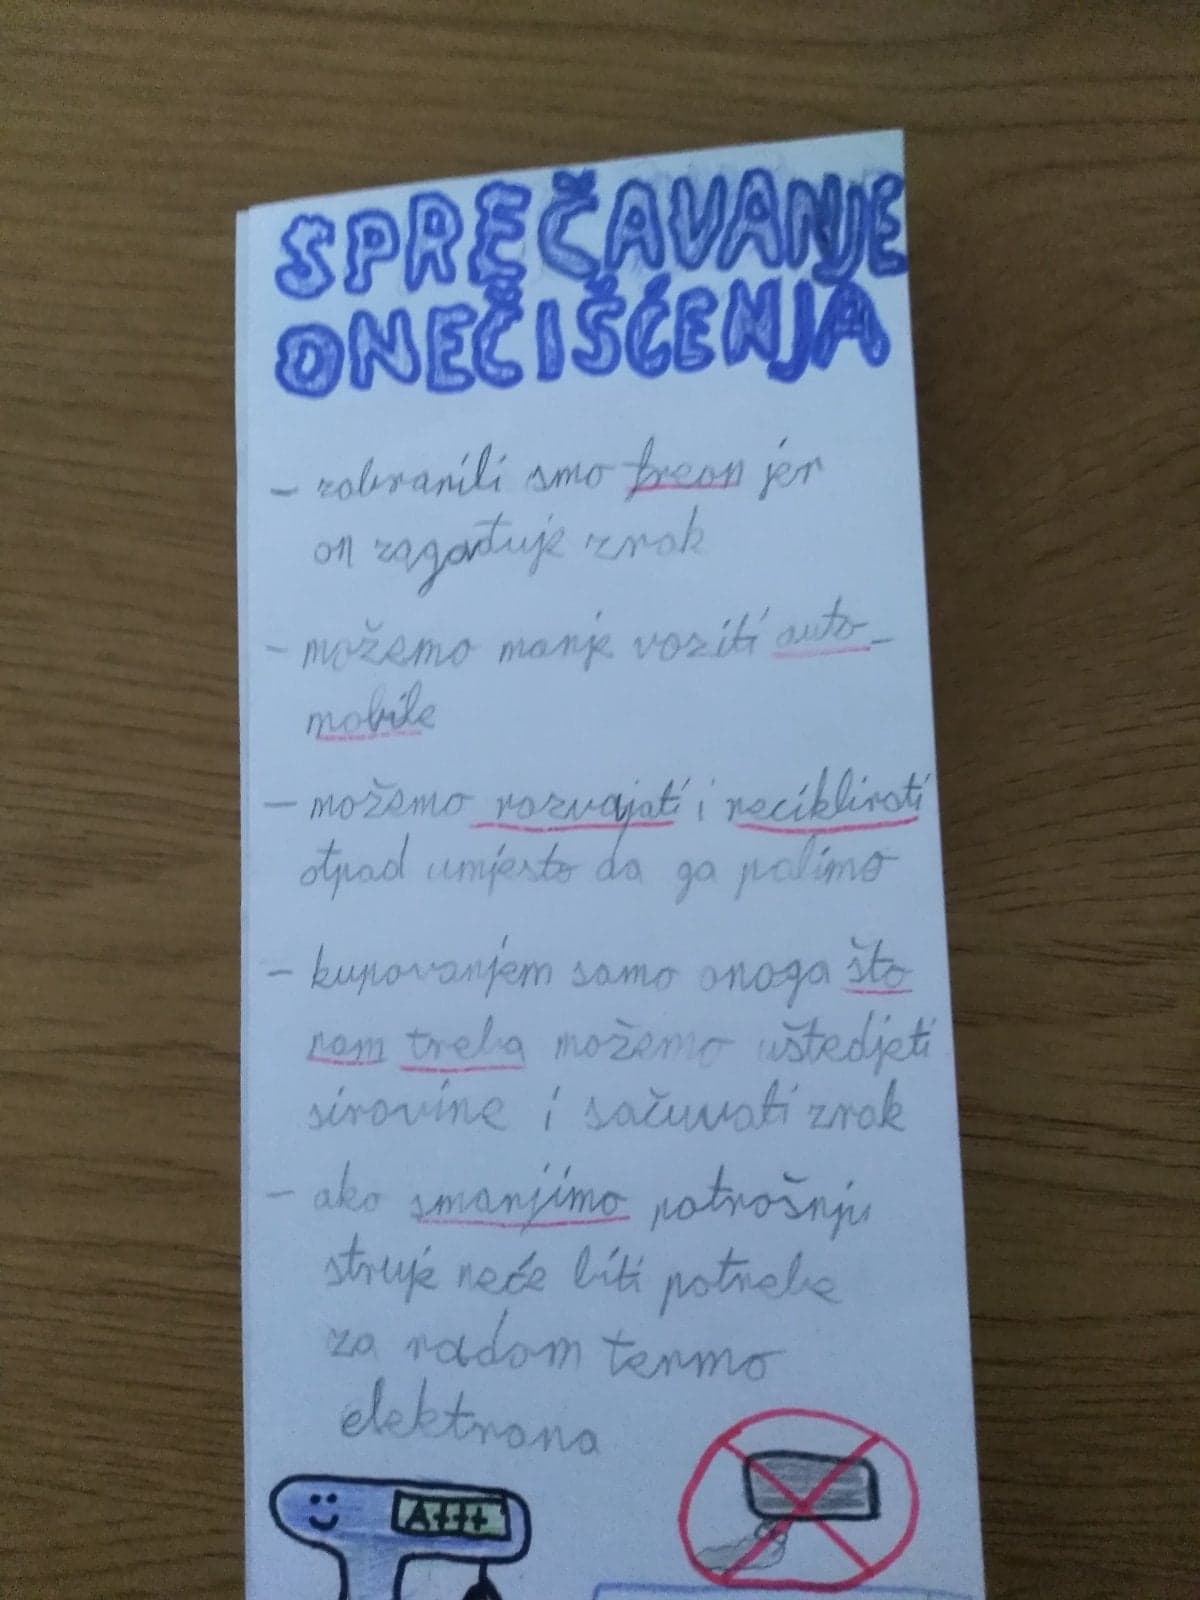 SPREČAVANJE
ONEČIŠĆENJA
- zabranili smo freon jer
on zagađuje zrak
- možemo manje voziti auto-
mobile
- možemo razvajati i reciklirati
otpad umjesto da ga palimo
- kupovanjem samo onoga što
nam treba možemo uštedjeti
sirovine i sačuvati zrak
- ako smanjimo potrošnju
struje neće biti potrebe
za radom termo
elektrana
A+++